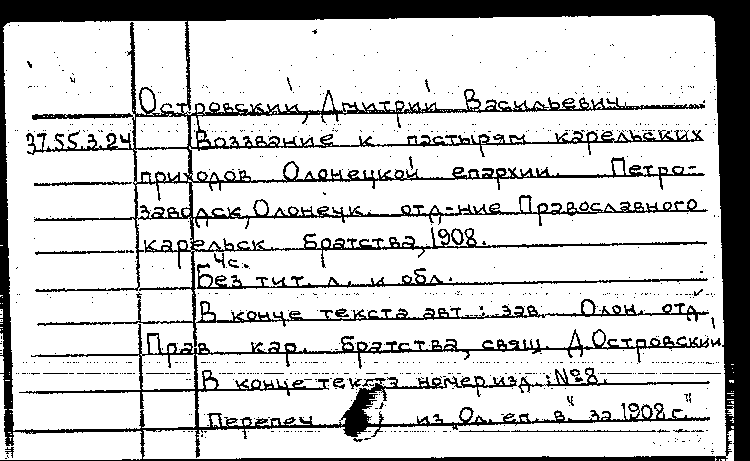 Островский, Дмитрий Васильевич.
37.55.3.24 Воззвание к пастырям карельских
приходов Олонецкой епархии. Петро-
заводск, Олонецк. отд-ние Православного
карельск. братства, 1908.
4с.
Без тит. л. и обл.
В конце текста авт.: зав. Олон. отд.
Прав. кар. братства, свящ. Д. Островский.
В конце текста номер изд.: №8.
Перепеч. из „Ол. еп. в." за 1908 г."